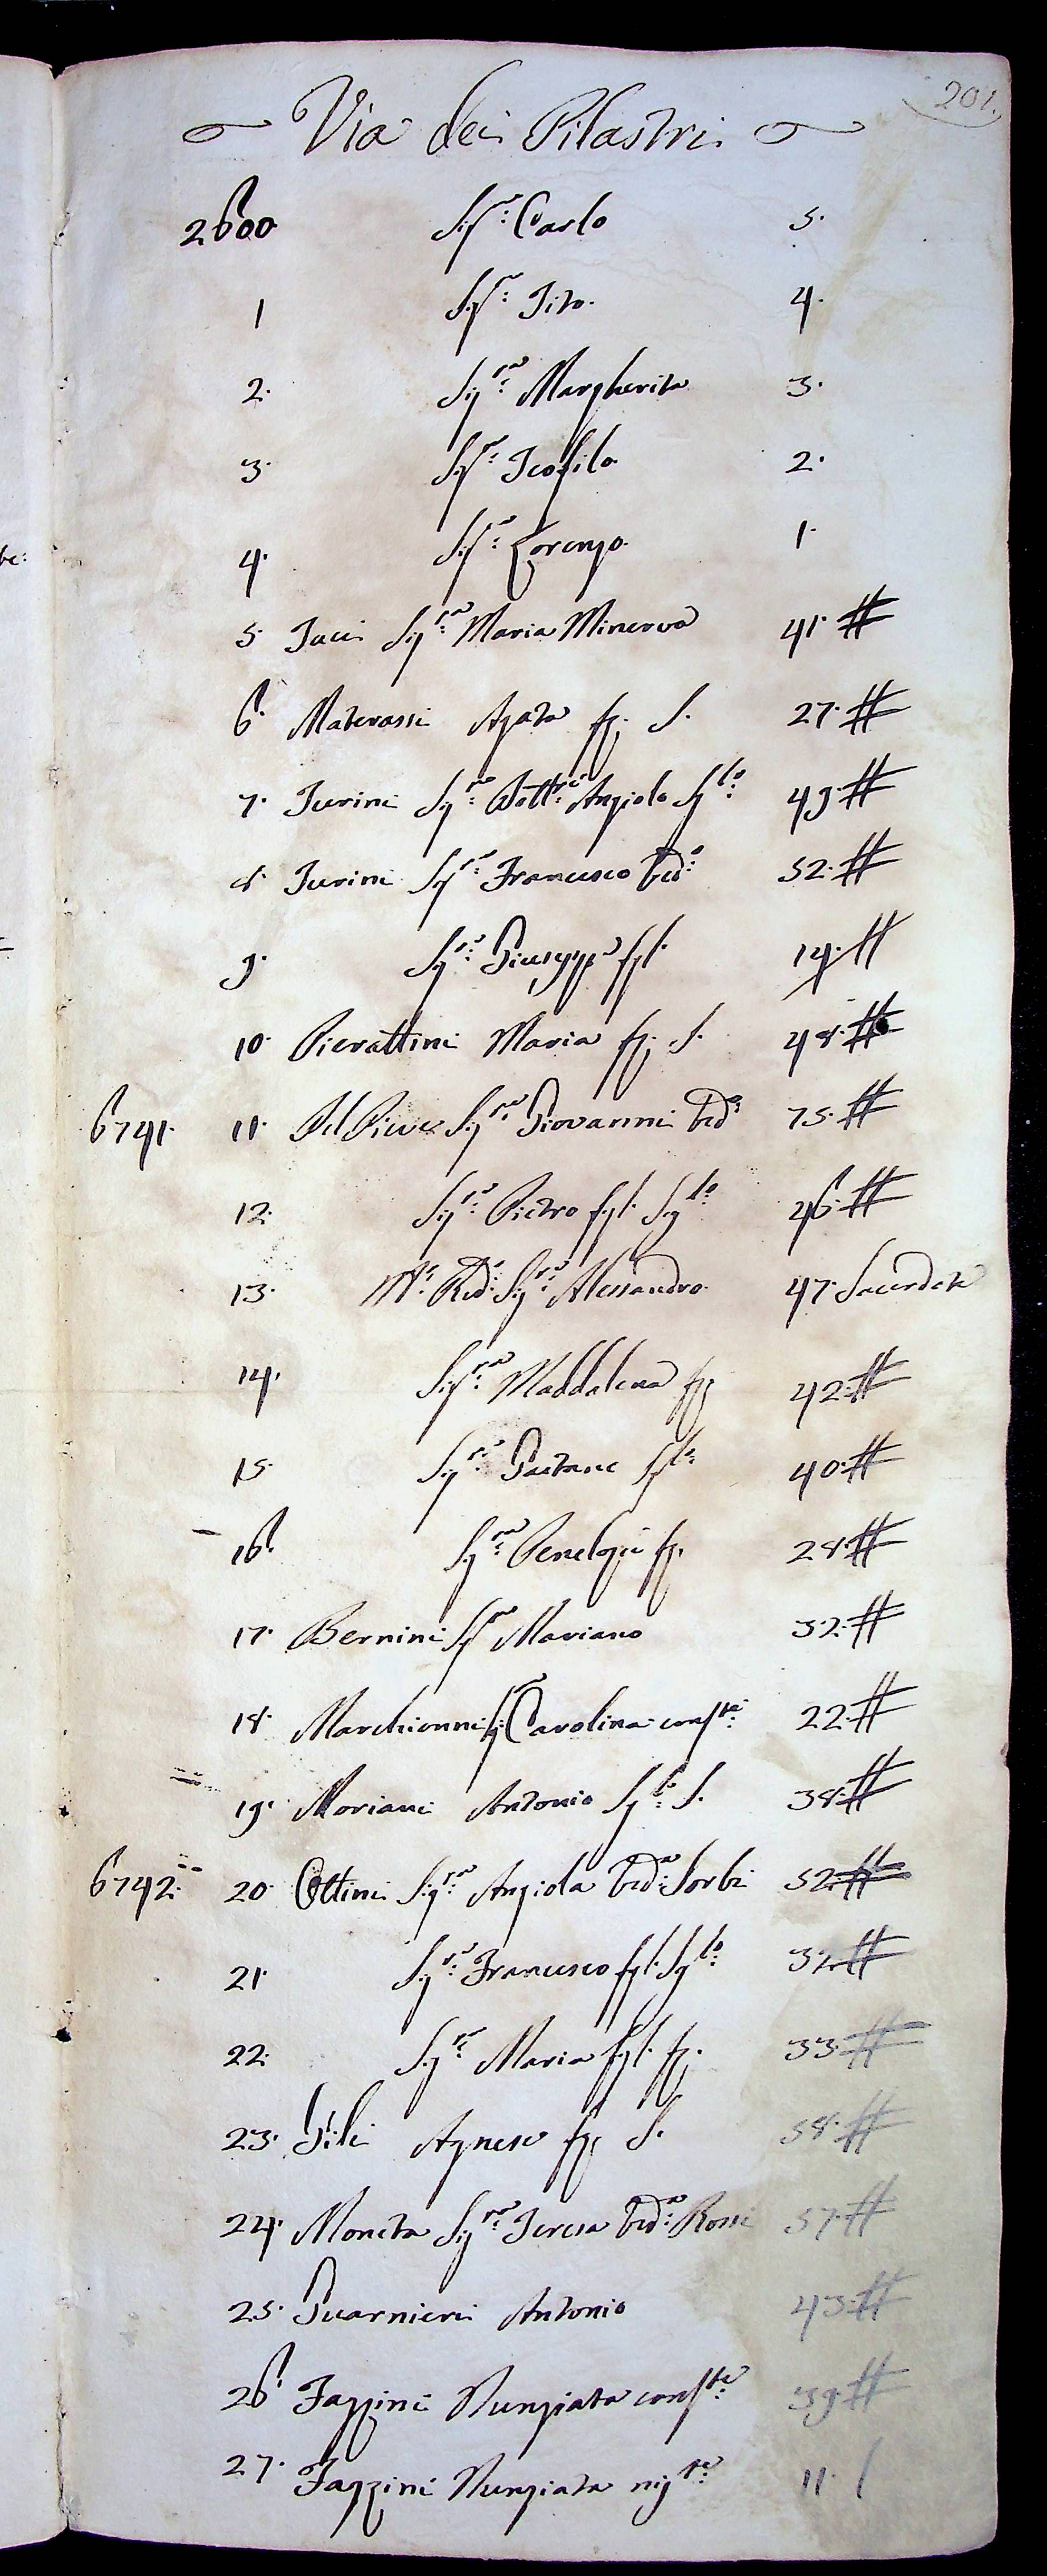 201.
Via dei Pilastri
2600 Sigre: Carlo 5.
1 Sigre: Tito. 4.
2. Sigra: Margherita 3.
3. Sigre: Teofilo 2.
4. Sigre: Lorenzo. 1.
5. Sigra: Maria Minerva 41. #
6. Materassi Agata fg. S. 27. #
7. Turini Sigre: Dottre: Angiolo Sglo: 49. #
8. Turini Sigre: Francesco Vedo: 52. #
9. Sigre: Giuseppe figl. 14. #
10. Pierattini Maria fg. S. 48. #
6741. 11. Del Pieve Sigre: Giovanni Vedo: 75. #
12. Sigre: Pietro figl. Sglo: 46. #
13. Mto: Redo: Sigre: Alessandro 47. Sacerdote
14. Sigra: Maddalena fg. 42. #
15. Sigre: Gaetano Sglo: 40. #
16. Sigra: Penelope fg. 28. #
17. Bernini Sigre Mariano 32. #
18. Marchionni Sigra Carolina conite: 22. #
19. Moriani Antonio Sglo: S. 38. #
6742. 20. Ottini Sigra: Angiola Veda: Sorbi 52. #
21. Sigre: Francesco figl. Sglo: 32. #
22. Sigra: Maria figl. fg. 33. #
23. Gili Agnese fg. S. 58. #
24. Moneta Sigra: Teresa Veda: Rossi 57. #
25. Guarnieri Antonio 43. #
26. Fazzini Nunziata conite: 39. #
27. Fazzini Nunziata nigte: 11. /